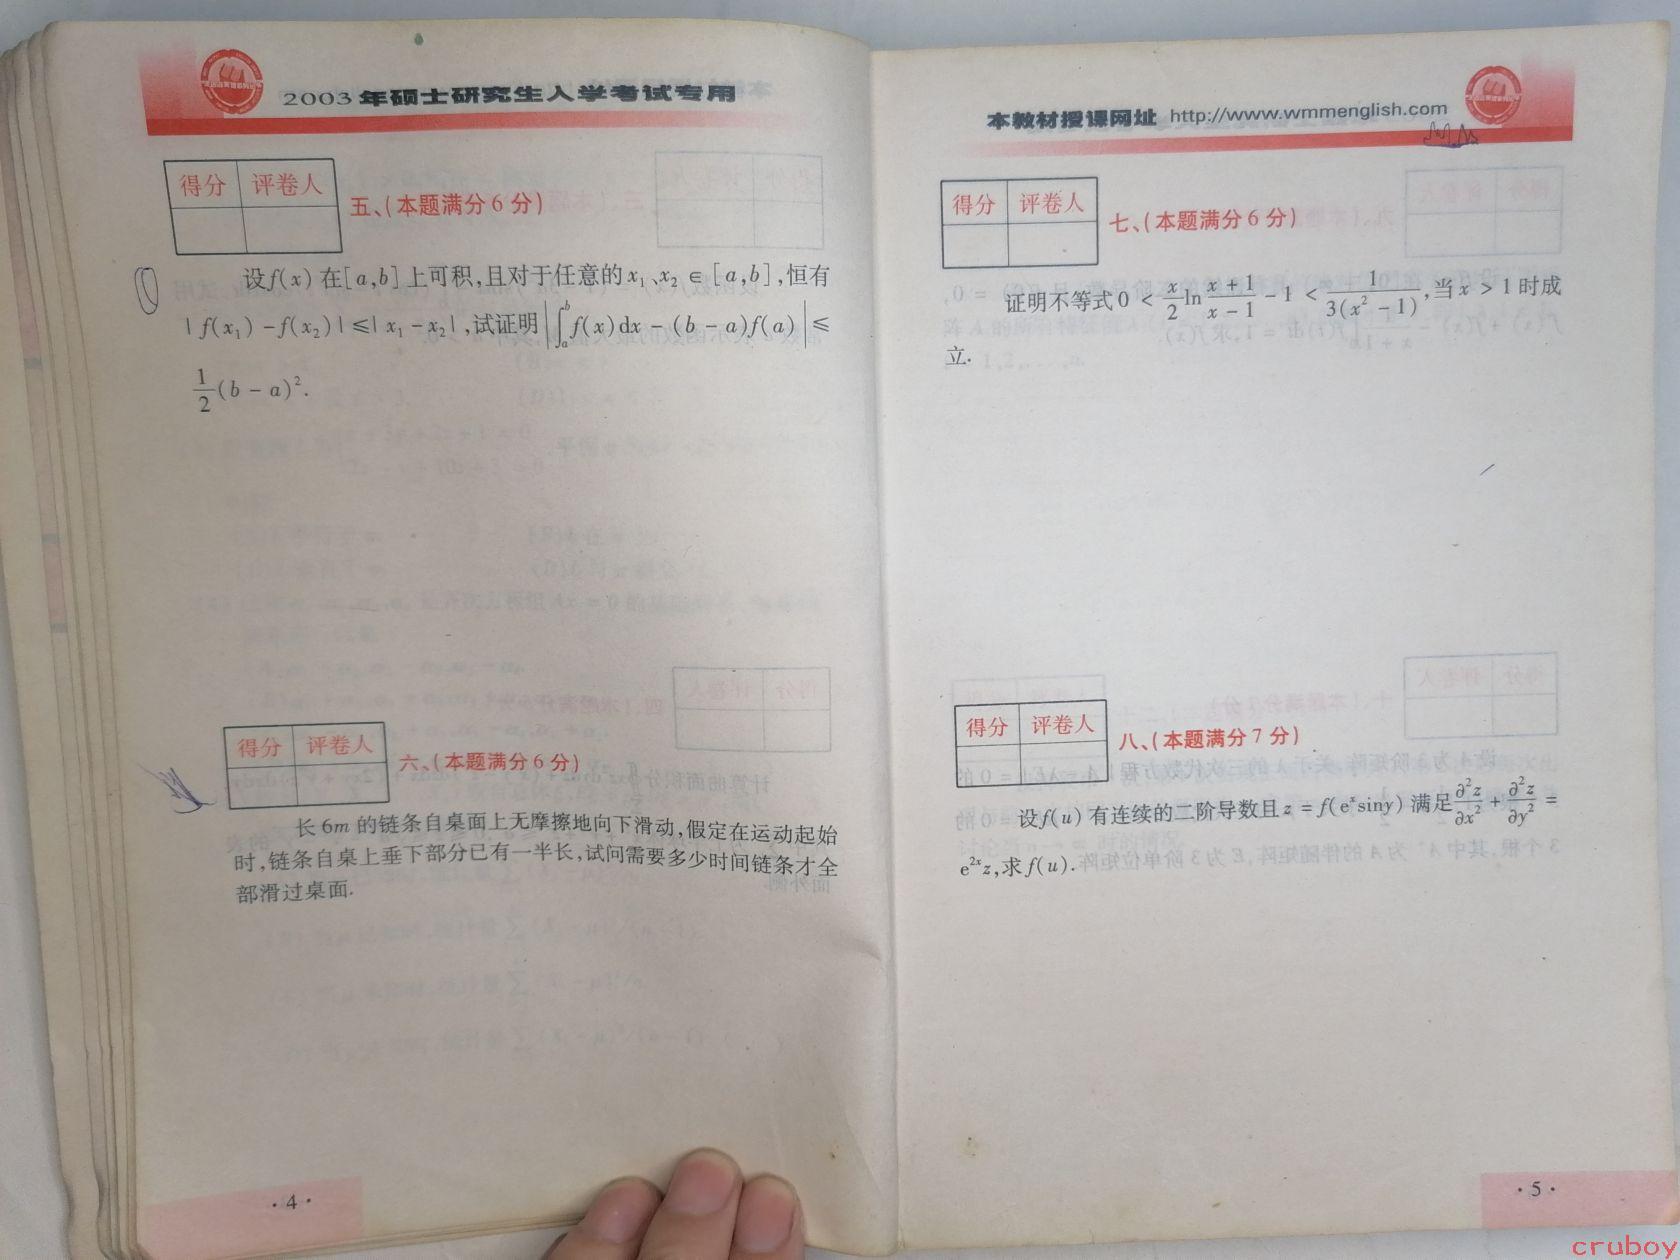 2003年硕士研究生入学考试专用
得分 评卷人
五、(本题满分6分)
设f(x)在[a,b]上可积,且对于任意的x₁、x₂∈[a,b],恒有
|f(x₁)-f(x₂)|≤|x₁-x₂|,试证明|∫ₐᵇf(x)dx-(b-a)f(a)|≤
1/2(b-a)².
得分 评卷人
六、(本题满分6分)
长6m的链条自桌面上无摩擦地向下滑动,假定在运动起始
时,链条自桌上垂下部分已有一半长,试问需要多少时间链条才全
部滑过桌面.
·4·
本教材授课网址 http://www.wmmenglish.com
得分 评卷人
七、(本题满分6分)
证明不等式0<x/2 ln (x+1)/(x-1) -1<1/(3(x²-1)),当x>1时成
立.
得分 评卷人
八、(本题满分7分)
设f(u)有连续的二阶导数且z=f(eˣsiny)满足∂²z/∂x²+∂²z/∂y²=
e²ˣz,求f(u).
·5·
cruboy